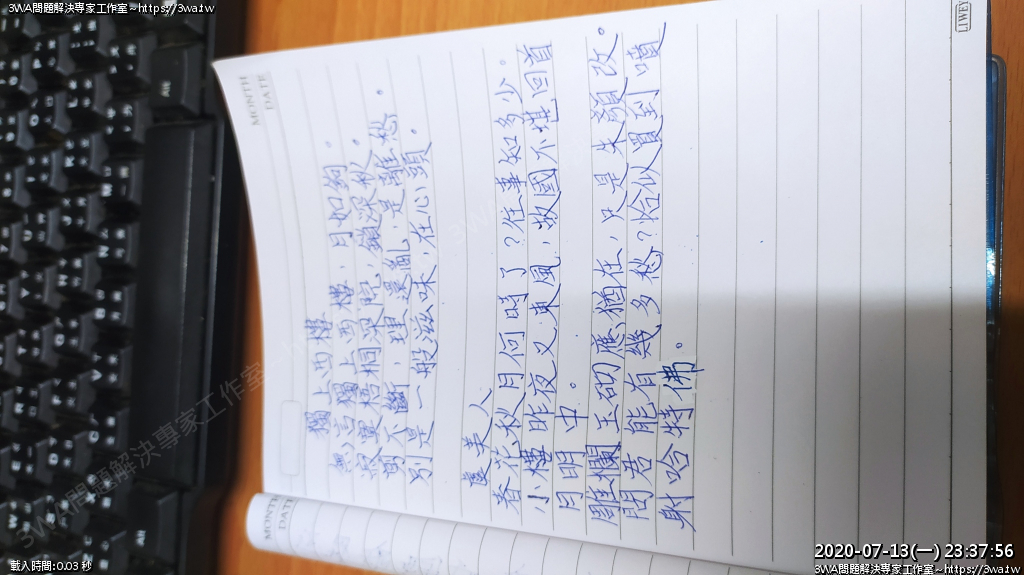 3WA問題解決專家工作室~https://3wa.tw
MONTH
DATE
獨上西樓
無言獨上西樓,月如鉤。
寂寞梧桐深院,鎖深秋。
剪不斷,理還亂,是離愁。
別是一般滋味,在心頭。
虞美人
春花秋月何時了?往事知多少。
小樓昨夜又東風,故國不堪回首
月明中。
雕欄玉砌應猶在,只是朱顏改。
問君能有幾多愁?恰似買到噴
射哈特佛。
MONTH
DATE
3WA問題解決專家工作室~https://3wa.tw
載入時間:0.03 秒
2020-07-13(一) 23:37:56
3WA問題解決專家工作室~https://3wa.tw